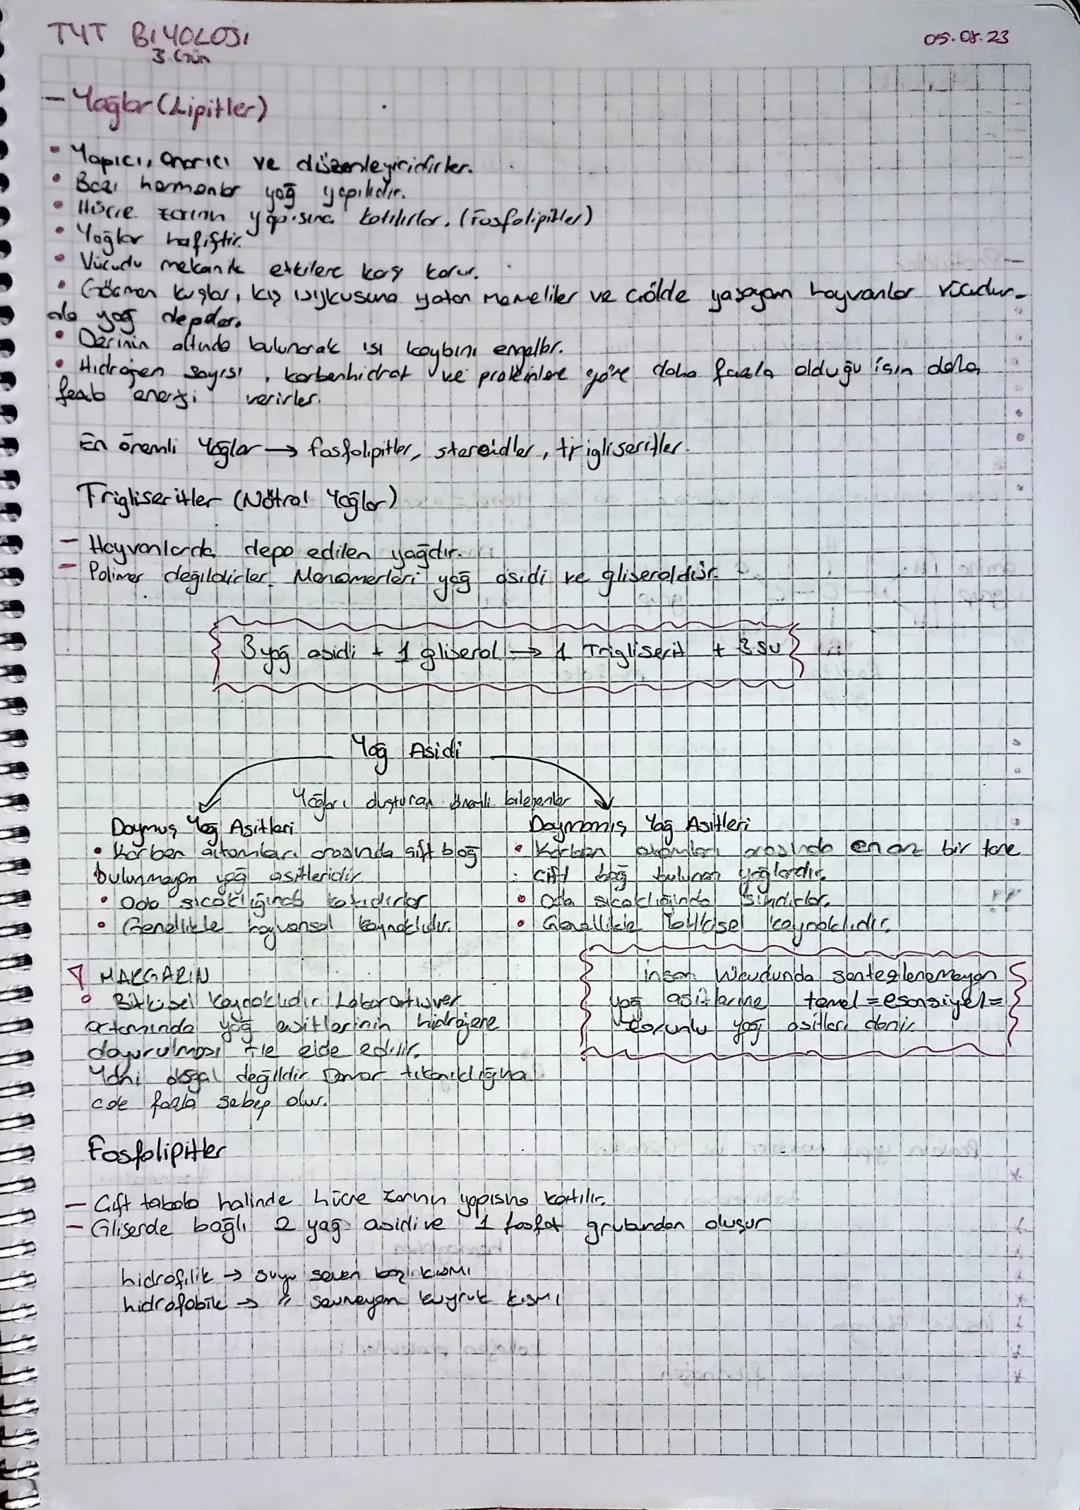 TYT BİYOLOJİ
05.08.23
3. Gün
- Yağlar (Lipitler)
• Yapıcı, onarıcı ve düzenleyicidirler.
• Bazı hormonlar yağ yapılıdır.
• Hücre zarının yapısına katılırlar. (Fosfolipitler)
• Yağlar hafiftir.
• Vücudu mekanik etkilere karşı korur.
• Göçmen kuşlar, kış uykusuna yatan memeliler ve çölde yaşayan hayvanlar vücudun-
da yağ depolar.
• Derinin altında bulunarak ısı kaybını engeller.
• Hidrojen sayısı, karbonhidrat ve proteinlere göre daha fazla olduğu için daha
fazla enerji verirler.
En önemli Yağlar → fosfolipitler, steroidler, trigliseritler.
Trigliseritler (Nötral Yağlar)
- Hayvanlarda depo edilen yağdır.
- Polimer değildirler. Monomerleri yağ asidi ve gliseroldür.
3 yağ asidi + 1 gliserol → 1 Trigliserit + 3 su
Yağ Asidi
Yağları oluşturan önemli bileşenler
Doymuş Yağ Asitleri
• Karbon atomları arasında çift bağ
bulunmayan yağ asitleridir
• Oda sıcaklığında katıdırlar
• Genellikle hayvansal kaynaklıdır.
Doymamış Yağ Asitleri
• Karbon atomları arasında en az bir tane
çift bağ bulunan yağlardır.
• Oda sıcaklığında sıvıdırlar.
• Genellikle bitkisel kaynaklıdır.
MARGARİN
• Bitkisel kaynaklıdır. Laboratuvar
ortamında yağ asitlerinin hidrojene
doyurulması ile elde edilir.
Yani doğal değildir Damar tıkanıklığına
fazla sebep olur.
insan vücudunda sentezlenemeyen
yağ asitlerine temel = esansiyel =
zorunlu yağ asitleri denir.
Fosfolipitler
- Çift tabaka halinde hücre zarının yapısına katılır.
- Gliserole bağlı 2 yağ asidi ve 1 fosfat grubundan oluşur
hidrofilik → suyu seven baş kısmı
hidrofobik → " sevmeyen kuyruk kısmı